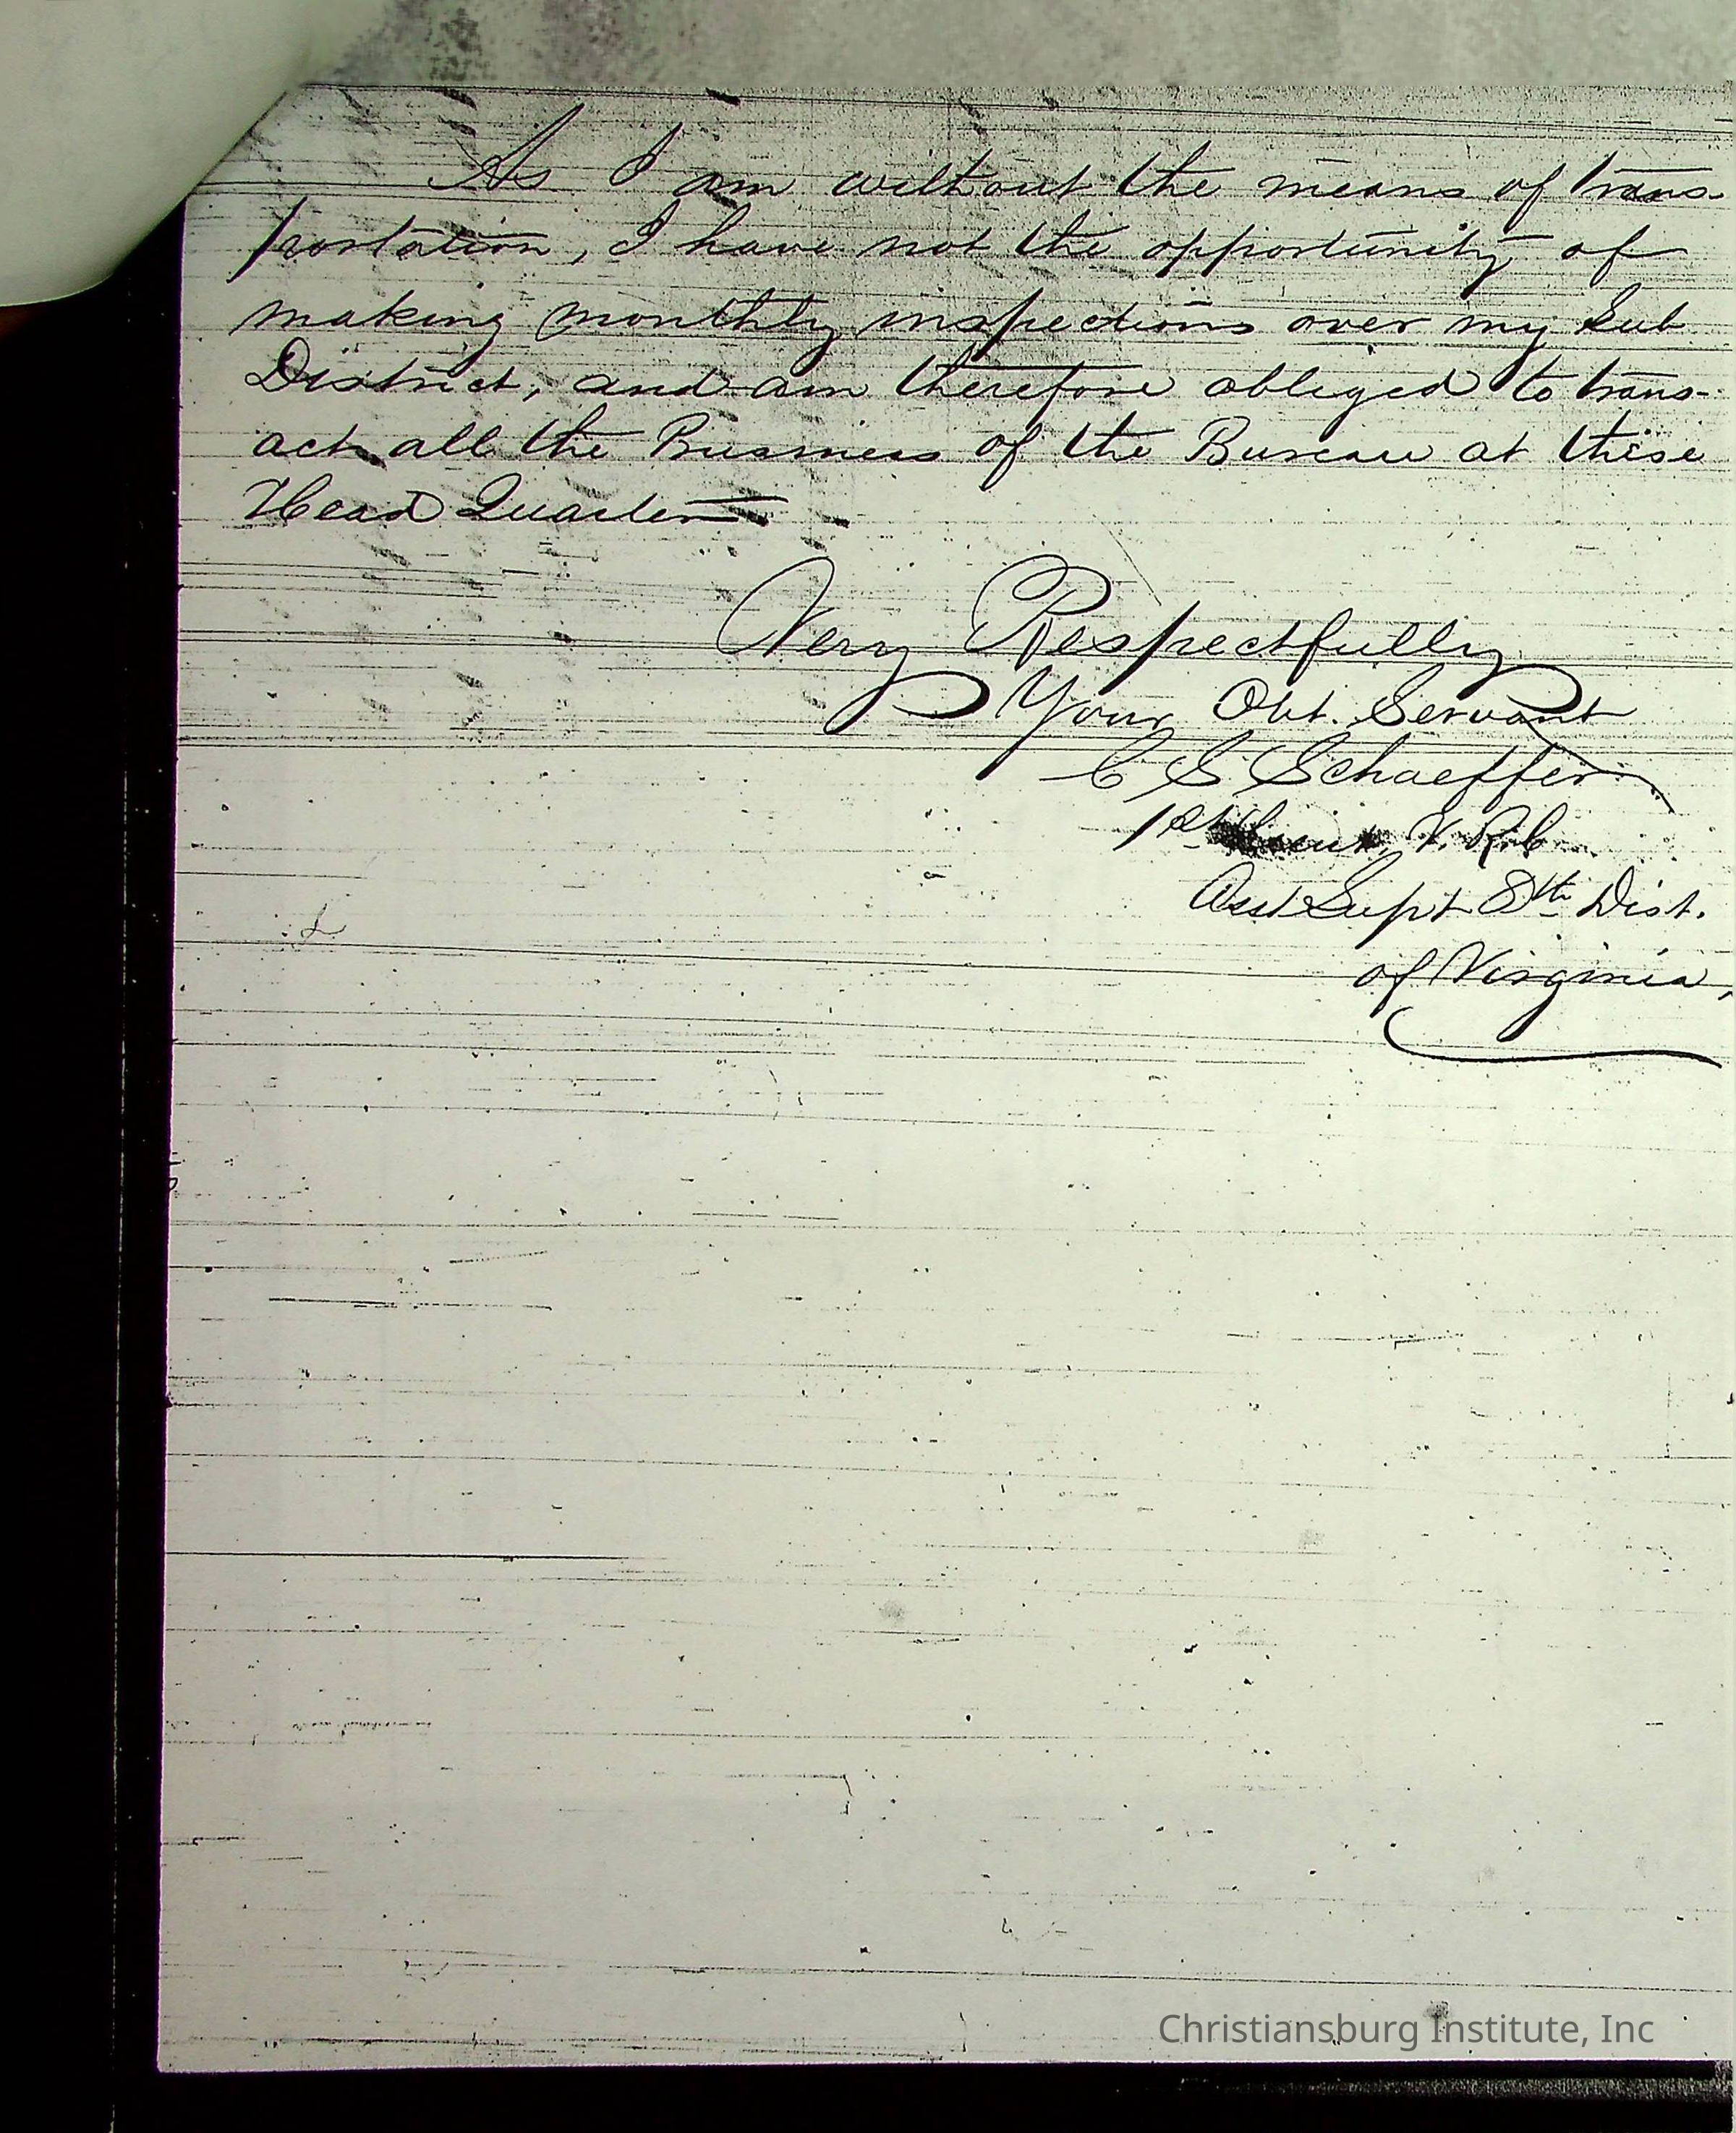 As I am without the means of trans-
portation, I have not the opportunity of
making monthly inspections over my Sub
District, and am therefore obliged to trans-
act all the Business of the Bureau at these
Head Quarters
Very Respectfully
Your Obt. Servant
C S Schaeffer
1st Lieut. V. R. C
Asst Supt 8th Dist.
of Virginia,
Christiansburg Institute, Inc